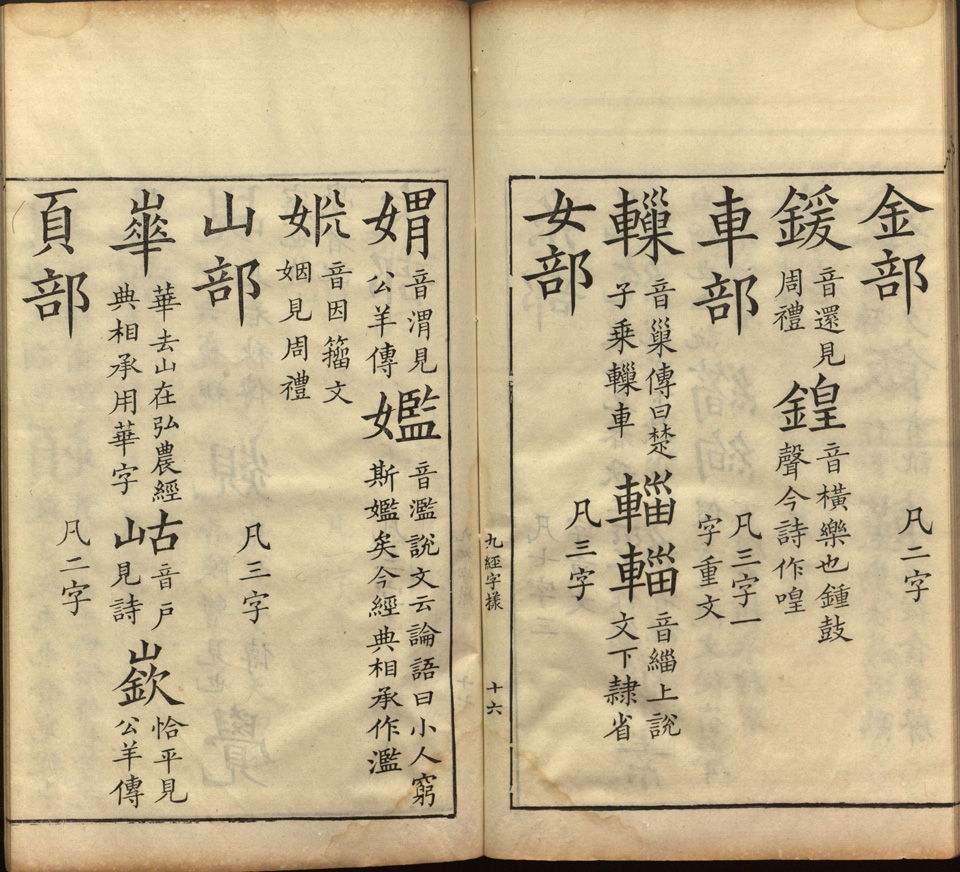 金部 凡二字
鍰 音還見周禮 鍠 音橫樂也鍾鼓聲今詩作喤
車部 凡三字一字重文
轈 音巢傳曰楚子乘轈車 輺輜 音緇上說文下隸省
女部 凡三字
九經字樣 十六
媦 音渭見公羊傳 㜮 音濫說文云論語曰小人窮斯㜮矣今經典相承作濫
音因籀文姻見周禮
山部 凡三字
崋 華去山在弘農經典相承用華字 岵 音戶見詩 嶔 恰平見公羊傳
頁部 凡二字